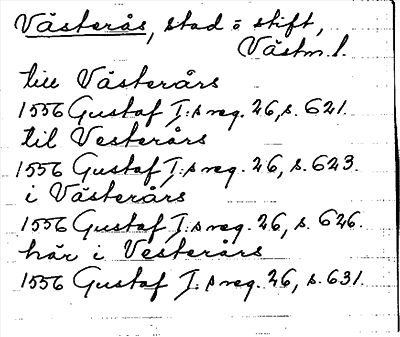 Västerås, stad o stift,
Västm. l.
till Västerårs
1556 Gustaf I:s reg. 26, s. 621.
til Vesterårs
1556 Gustaf I:s reg. 26, s. 623.
i Västerårs
1556 Gustaf I:s reg. 26, s. 626.
här i Vesterårs
1556 Gustaf I:s reg. 26, s. 631.